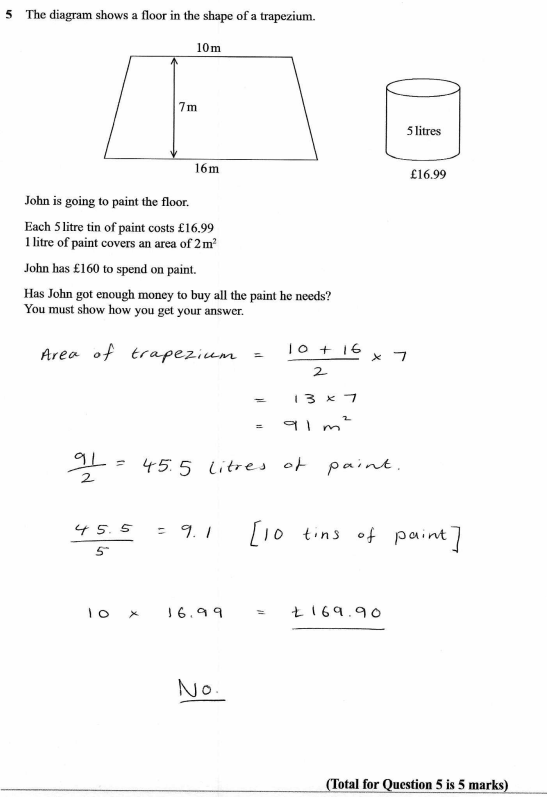 5 The diagram shows a floor in the shape of a trapezium.
10 m
7 m
16 m
5 litres
£16.99
John is going to paint the floor.
Each 5 litre tin of paint costs £16.99
1 litre of paint covers an area of 2 m²
John has £160 to spend on paint.
Has John got enough money to buy all the paint he needs?
You must show how you get your answer.
Area of trapezium = 10 + 16 / 2 × 7
= 13 × 7
= 91 m²
91 / 2 = 45.5 litres of paint.
45.5 / 5 = 9.1 [10 tins of paint]
10 × 16.99 = £169.90
No.
(Total for Question 5 is 5 marks)